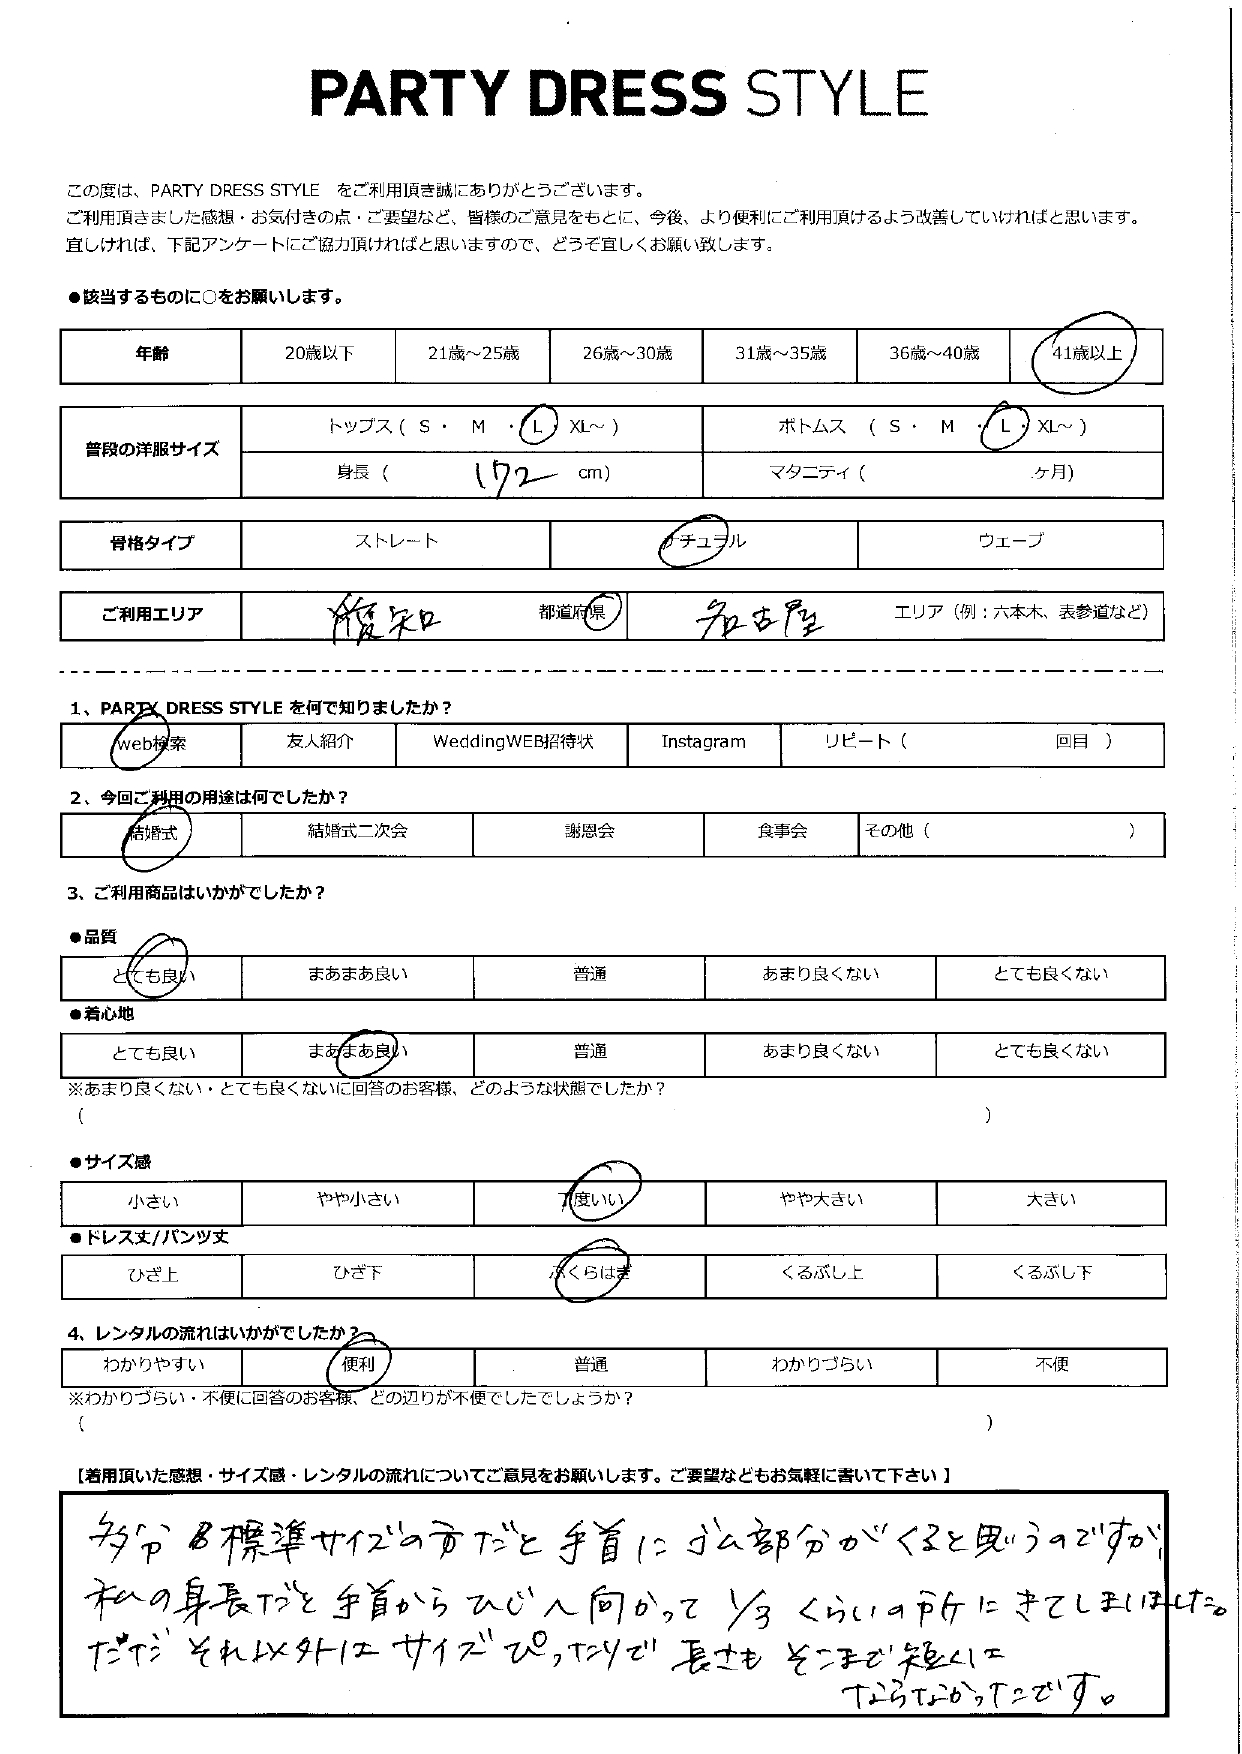 PARTY DRESS STYLE
この度は、PARTY DRESS STYLE　をご利用頂き誠にありがとうございます。
ご利用頂きました感想・お気付きの点・ご要望など、皆様のご意見をもとに、今後、より便利にご利用頂けるよう改善していければと思います。
宜しければ、下記アンケートにご協力頂ければと思いますので、どうぞ宜しくお願い致します。
●該当するものに○をお願いします。
年齢 20歳以下 21歳～25歳 26歳～30歳 31歳～35歳 36歳～40歳 41歳以上
普段の洋服サイズ トップス ( S ・ M ・ L ・ XL～ ) ボトムス ( S ・ M ・ L ・ XL～ )
身長 ( 172 cm) マタニティ ( ヶ月)
骨格タイプ ストレート ナチュラル ウェーブ
ご利用エリア 愛知 都道府県 名古屋 エリア（例：六本木、表参道など）
1、PARTY DRESS STYLE を何で知りましたか？
web検索 友人紹介 WeddingWEB招待状 Instagram リピート ( 回目 )
2、今回ご利用の用途は何でしたか？
結婚式 結婚式二次会 謝恩会 食事会 その他 ( )
3、ご利用商品はいかがでしたか？
●品質
とても良い まあまあ良い 普通 あまり良くない とても良くない
●着心地
とても良い まあまあ良い 普通 あまり良くない とても良くない
※あまり良くない・とても良くないに回答のお客様、どのような状態でしたか？
( )
●サイズ感
小さい やや小さい 丁度いい やや大きい 大きい
●ドレス丈/パンツ丈
ひざ上 ひざ下 ふくらはぎ くるぶし上 くるぶし下
4、レンタルの流れはいかがでしたか？
わかりやすい 便利 普通 わかりづらい 不便
※わかりづらい・不便に回答のお客様、どの辺りが不便でしたでしょうか？
( )
【着用頂いた感想・サイズ感・レンタルの流れについてご意見をお願いします。ご要望などもお気軽に書いて下さい 】
多分 標準サイズの方だと 手首に ゴム部分がくると思うのですが、
私の身長だと 手首からひじへ向かって 1/3 くらいの所にきてしまいました。
ただ それ以外は サイズぴったりで 長さも そこまで短くは
ならなかったです。